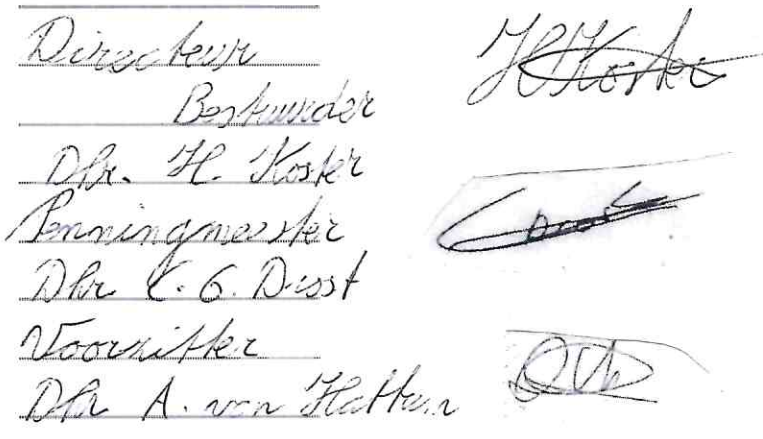 Directeur
Bestuurder
Dhr. H. Koster
HKoster
Penningmeester
Dhr C. G. Disst
Voorzitter
Dhr A. van Hattum